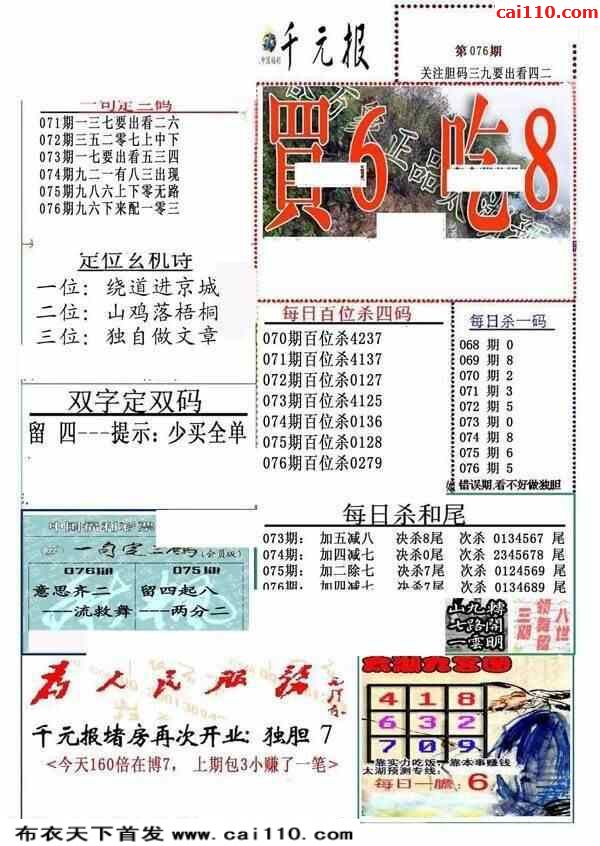 @彩摘网
cai110.com
千元报
第076期
关注胆码三九要出看四二
一句定三码
071期一三七要出看二六
072期三五二零七上中下
073期一七要出看五三四
074期九二一有八三出现
075期九八六上下零无路
076期九六下来配一零三
買6 吃8
定位玄机诗
一位: 绕道进京城
二位: 山鸡落梧桐
三位: 独自做文章
每日百位杀四码
070期百位杀4237
071期百位杀4137
072期百位杀0127
073期百位杀4125
074期百位杀0136
075期百位杀0128
076期百位杀0279
每日杀一码
068 期 0
069 期 8
070 期 2
071 期 3
072 期 5
073 期 0
074 期 8
075 期 5
076 期 5
错误期,看不好做独胆
双字定双码
留 四---提示: 少买全单
每日杀和尾
073期: 加五减八 决杀8尾 次杀 0134567 尾
074期: 加四减七 决杀0尾 次杀 2345678 尾
075期: 加二除七 决杀7尾 次杀 0124569 尾
076期: 加四减七 决杀7尾 次杀 0134689 尾
中国福利彩票
一句定二码(会员版)
076期 075期
意思齐二 留四起八
----流救舞 ----两分二
山九精
七路開
一雲明
为人民服务
千元报堵房再次开业: 独胆 7
<今天160倍在博7, 上期包3小赚了一笔>
太湖九宫图
4 1 8
6 3 2
7 0 9
靠实力吃饭,靠本事赚钱
太湖预测专线:
每日一胆: 6
布衣天下首发 www.cai110.com